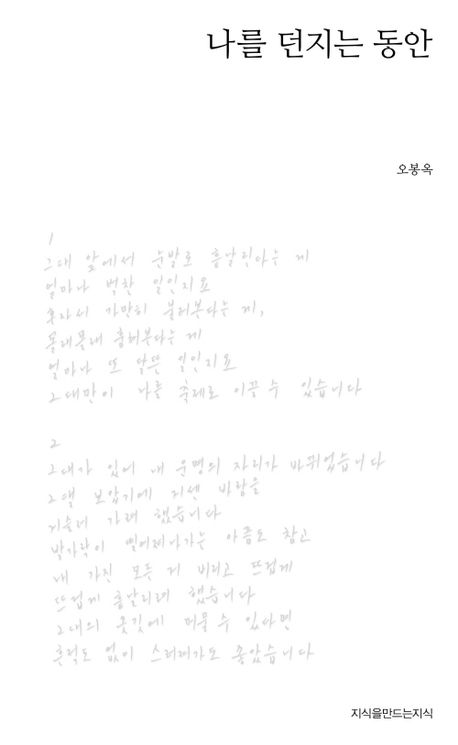 나를 던지는 동안
오봉옥
1
그대 앞에서 눈발로 흩날린다는 게
얼마나 벅찬 일인지요
혼자서 가만히 불러본다는 게,
몰래몰래 훔쳐본다는 게
얼마나 또 달뜬 일인지요
그대만이 나를 축제로 이끌 수 있습니다
2
그대가 있어 내 운명의 자리가 바뀌었습니다
그댈 보았기에 거센 바람을
거슬러 가려 했습니다
발가락이 떨어져나가는 아픔도 참고
내 가진 모든 거 버리고 뜨겁게
뜨겁게 흩날리려 했습니다
그대의 옷깃에 머물 수 있다면
흔적도 없이 스러져가도 좋았습니다
지식을만드는지식